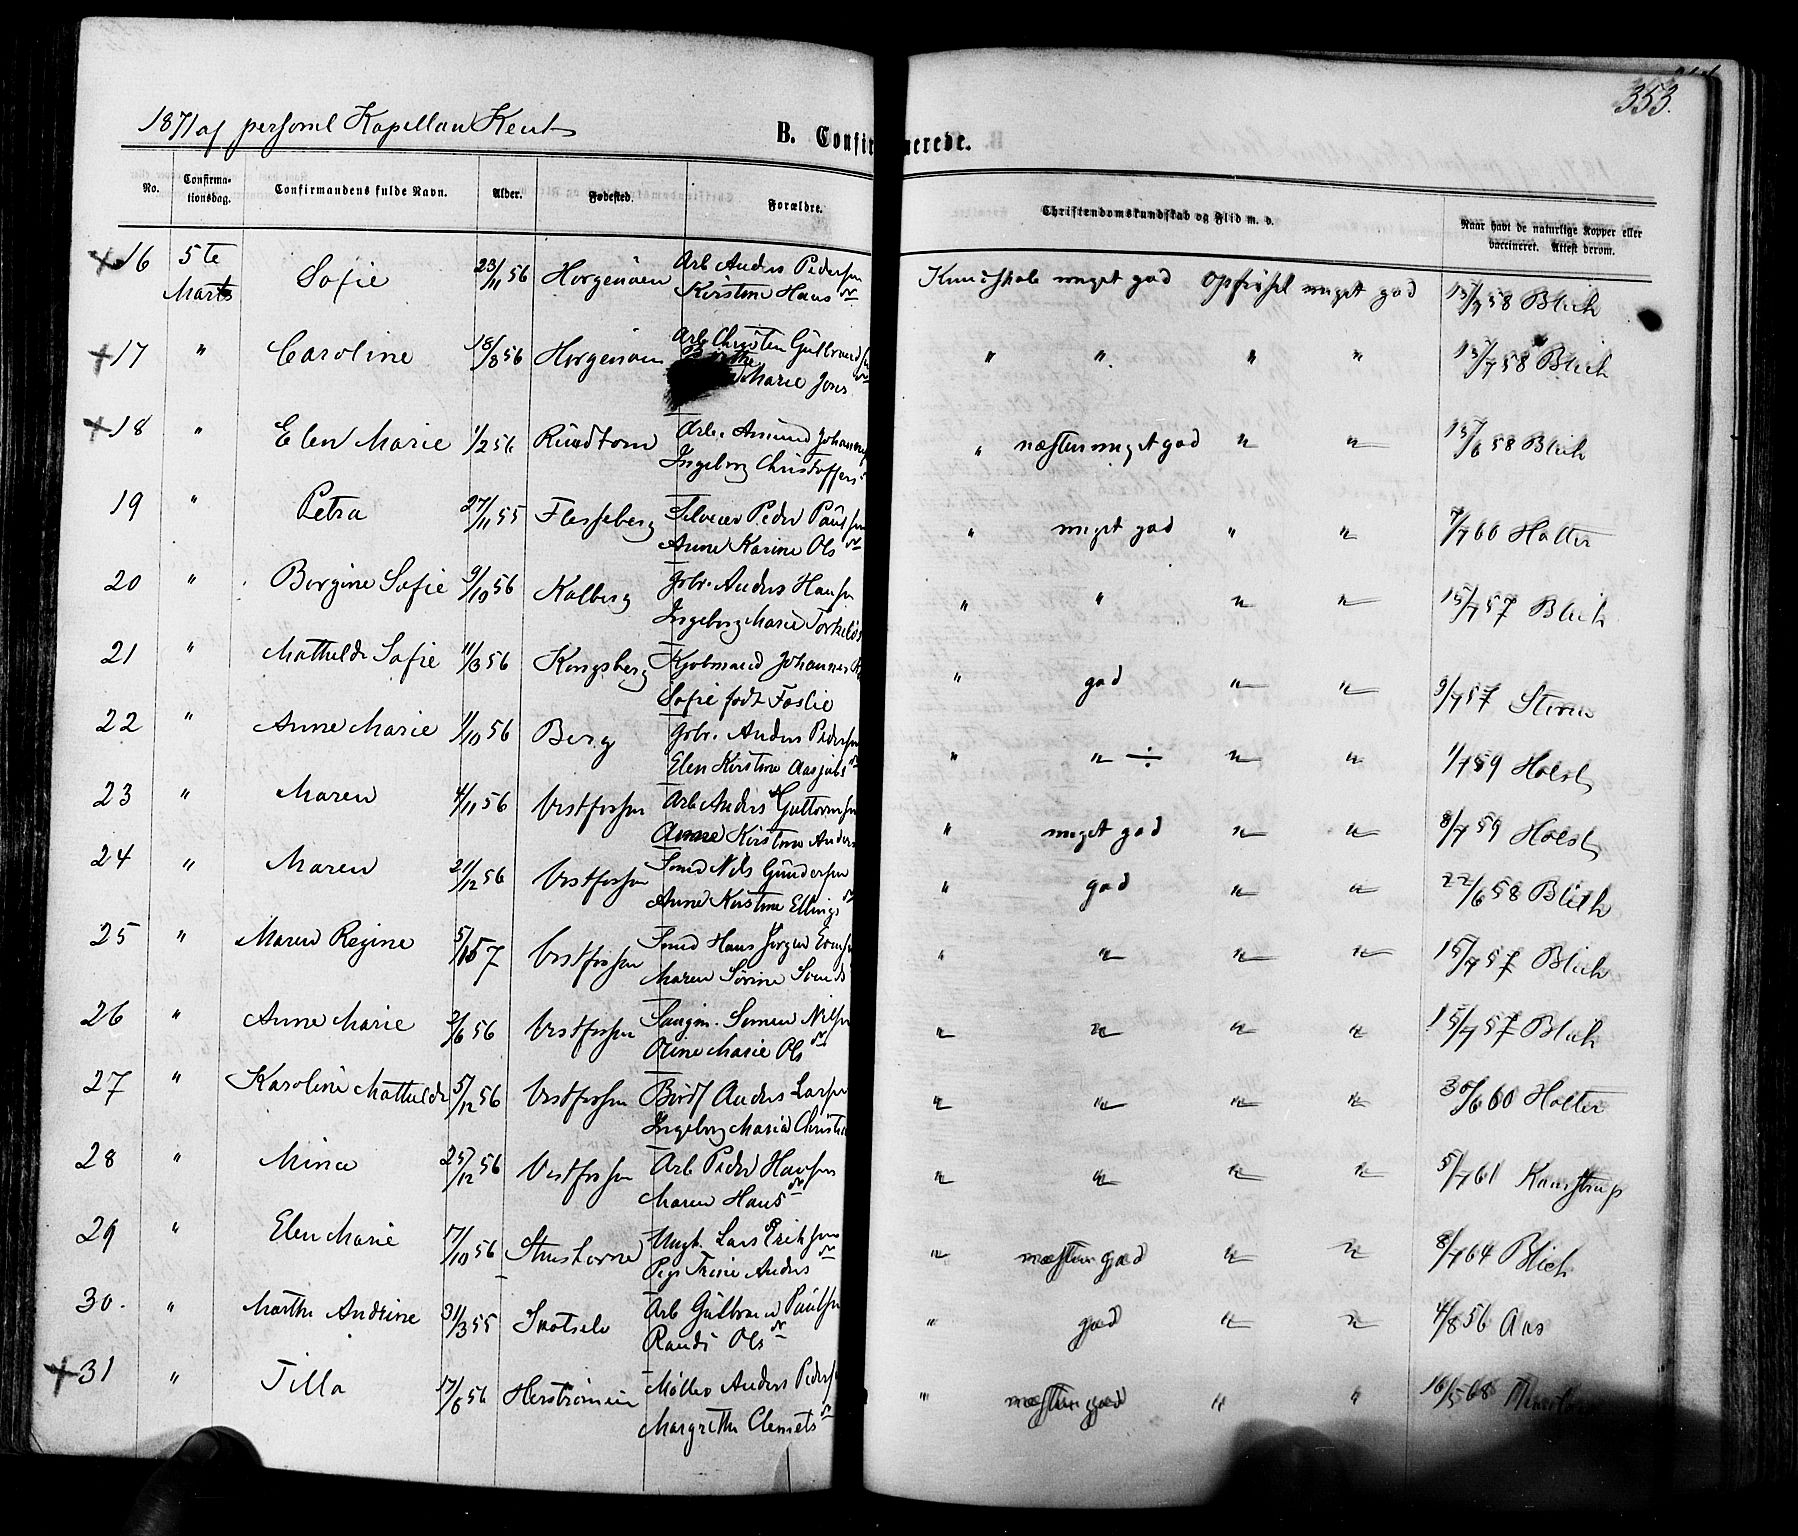 353.
1871 af personel Kapellan Kent
B. Confirmerede.
No. Confirma-tionsdag. Confirmandens fulde Navn. Alder. Fødested. Forældre. Christendomskundskab og Flid m. v. Naar havt de naturlige Kopper eller vaccineret. Attest derom.
16 5te Marts Sofie 23/11 56 Horgenøen Arb Anders Pedersen Kundskab meget god Opførsel meget god 15/7 58 Blich
Kirstine Hansdr
17 " Caroline 18/8 56 Horgenøen Arb Christen Gulbrandsen " " " " 15/7 58 Blich
Birthe Marie Jonsdr
18 " Elen Marie 1/2 56 Rundtom Arb. Amund Johannes " næsten meget god " " 15/6 58 Blich
Ingeborg Christoffers
19 " Petra 27/11 55 Flesseberg Peder Paulsen " meget god " " 7/7 60 Holter
Anne Karine Olsdr
20 " Bergine Sofie 9/10 56 Kolberg Gbr. Anders Hansen " " " " 15/7 57 Blich
Ingeborg Marie Torkilds
21 " Mathilde Sofie 11/3 56 Kongsberg Kjøbmand Johannes " god " " 9/7 57
Sofie født Foslie
22 " Anne Marie 1/10 56 Berg Gbr. Anders Pedersen " " ÷ " " 1/7 59 Holst
Elen Kirstine
23 " Maren 4/11 56 Vestfossen Arb Anders Guttormsen " meget god " " 8/7 59 Holst
Anne Kirstine Anders
24 " Maren 21/12 56 Vestfossen Smed Nils Gundersen " god " " 22/6 58 Blich
Anne Kirstine Ellingsdr
25 " Maren Regine 5/1 57 Vestfossen Smed Hans Jørgen " " " " 15/7 57 Blich
Maren Sørine
26 " Anne Marie 2/6 56 Vestfossen Saugm. Simen Nilsen " " " " 15/7 57 Blich
Oline Marie Olsdr
27 " Karoline Mathilde 5/12 56 Vestfossen Anders Larsen " " " " 30/6 60 Holter
Ingeborg Maria Christia
28 " Mina 25/12 56 Vestfossen Arb Peder Hansen " " " " 5/7 61 Kaurstrup
Maren Hansdr
29 " Elen Marie 17/10 56 Ungk. Lars Eriksen " næsten god " " 8/7 64 Blich
Pige Trine Andersdr
30. " Marthe Andrine 31/3 55 Skotselv Arb Gulbrand Paulsen " god " " 4/8 56 Aas
Randi Olsdr
31 " Tilla 17/6 56 Herstrømmen Møller Anders Peders " næsten god " " 16/5 68
Margrethe Clemetsdr